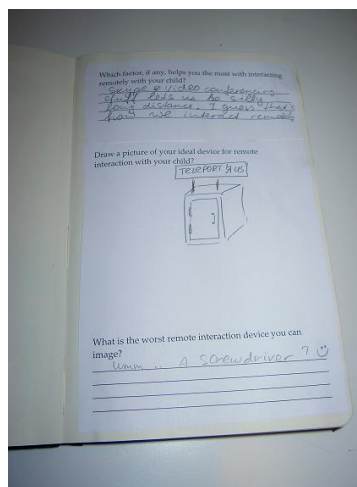 Which factor, if any, helps you the most with interacting
remotely with your child?
Skype & video conferencing
stuff lets us be silly
long distance. I guess that's
how we interact remotely
Draw a picture of your ideal device for remote
interaction with your child?
TELEPORT US
What is the worst remote interaction device you can
image?
umm .. A screwdriver ?